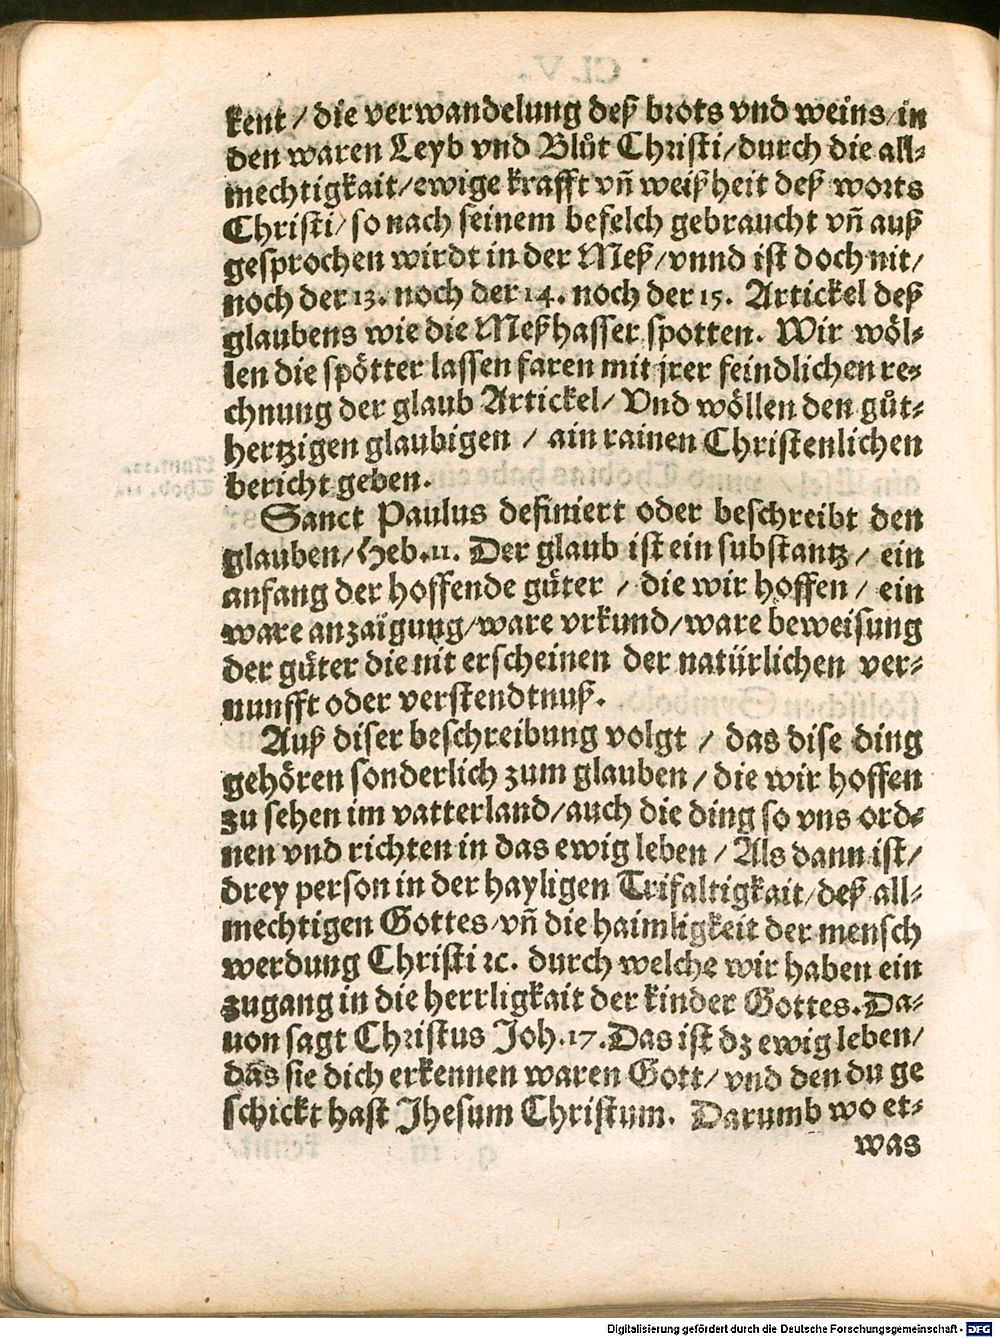 kent / die verwandelung deß brots vnd weins / in
den waren Leyb vnd Blůt Christi / durch die all-
mechtigkait / ewige krafft vñ weißheit deß worts
Christi / so nach seinem befelch gebraucht vñ auß
gesprochen wirdt in der Meß / vnnd ist doch nit /
noch der 13. noch der 14. noch der 15. Artickel deß
glaubens wie die Meßhasser spotten. Wir wöl-
len die spötter lassen faren mit jrer feindlichen re-
chnung der glaub Artickel / Vnd wöllen den gůt-
hertzigen glaubigen / ain rainen Christenlichen
bericht geben.
Sanct Paulus definiert oder beschreibt den
glauben / Heb. 11. Der glaub ist ein substantz / ein
anfang der hoffende güter / die wir hoffen / ein
ware anzaigung / ware vrkund / ware beweisung
der güter die nit erscheinen der natürlichen ver-
nunfft oder verstendtnuß.
Auß diser beschreibung volgt / das dise ding
gehören sonderlich zum glauben / die wir hoffen
zu sehen im vatterland / auch die ding so vns ord-
nen vnd richten in das ewig leben / Als dann ist /
drey person in der hayligen Trifaltigkait / deß all-
mechtigen Gottes / vñ die haimligkeit der mensch
werdung Christi ꝛc. durch welche wir haben ein
zugang in die herrligkait der kinder Gottes. Da-
uon sagt Christus Joh. 17. Das ist dz ewig leben /
das sie dich erkennen waren Gott / vnd den du ge
schickt hast Jhesum Christum. Darumb wo et-
was
Digitalisierung gefördert durch die Deutsche Forschungsgemeinschaft - DFG